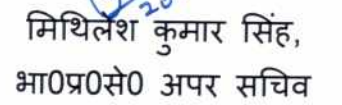 मिथिलेश कुमार सिंह,
भा0प्र0से0 अपर सचिव